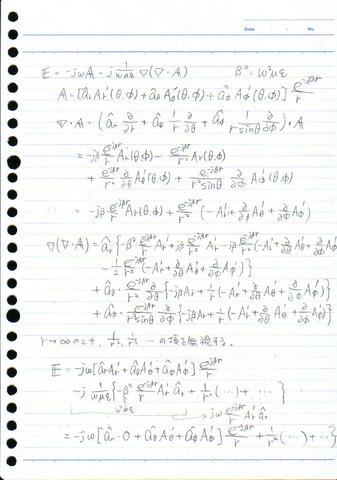 Date No.
𝔼 = -jω𝔸 - j 1/(ωμε) ∇(∇·𝔸)    β² = ω²με
𝔸 = [â_r A_r'(θ,φ) + â_θ A_θ'(θ,φ) + â_φ A_φ'(θ,φ)] e^{-jβr}/r
∇·𝔸 = (â_r ∂/∂r + â_θ 1/r ∂/∂θ + â_φ 1/(r sinθ) ∂/∂φ)·𝔸
= -jβ e^{-jβr}/r A_r'(θ,φ) - e^{-jβr}/r² A_r'(θ,φ)
+ e^{-jβr}/r² ∂/∂θ A_θ'(θ,φ) + e^{-jβr}/(r² sinθ) ∂/∂φ A_φ'(θ,φ)
= -jβ e^{-jβr}/r A_r'(θ,φ) + e^{-jβr}/r² (-A_r' + ∂/∂θ A_θ' + ∂/∂φ A_φ')
∇(∇·𝔸) = â_r{-β² e^{-jβr}/r A_r' + jβ e^{-jβr}/r² A_r' - jβ e^{-jβr}/r² (-A_r' + ∂/∂θ A_θ' + ∂/∂φ A_φ')
(-A_r' + ∂/∂θ A_θ' + ∂/∂φ A_φ')}
+ â_θ · e^{-jβr}/r² ∂/∂θ {-jβA_r' + 1/r (-A_r' + ∂/∂θ A_θ' + ∂/∂φ A_φ')}
+ â_φ · e^{-jβr}/(r² sinθ) ∂/∂φ {-jβA_r' + 1/r (-A_r' + ∂/∂θ A_θ' + ∂/∂φ A_φ')}
r→∞のとき、1/r², 1/r³ … の項を無視する。
𝔼 = -jω[â_r A_r' + â_θ A_θ' + â_φ A_φ'] e^{-jβr}/r
-j 1/(ωμε) {-β² e^{-jβr}/r A_r' â_r + 1/r² (…) + …… }
ω²με → jω e^{-jβr}/r A_r' â_r
= -jω[â_r·0 + â_θ A_θ' + â_φ A_φ'] e^{-jβr}/r + 1/r² (…) + …}